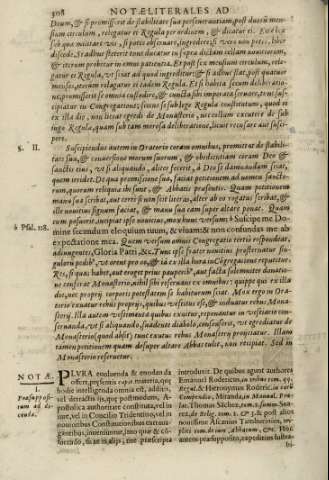 308 NOTÆ LITERALES AD
Deum, & si promiserit de stabilitate sua perseverantiam, post duorum mensium
circulum, relegatur ei Regula per ordinem, & dicatur ei. Ecce lex
sub qua militare vis, si potes observare, ingredere: si vero non potes, liber
discede. Si adhuc steterit tunc ducatur in supra dictam cellam novitiorum,
& iterum probetur in omni patientia. Et post sex mensium circulum, relegatur
ei Regula, ut sciat ad quod ingreditur: & si adhuc stat, post quatuor
menses, iterum relegatur ei eadem Regula. Et si habita secum deliberatione,
promiserit se omnia custodire, & cuncta sibi imperata servare, tunc suscipiatur
in Congregatione; sciens se sub lege Regula constitutum, quod ei
ex illa die, non liceat egredi de Monasterio, nec collum excutere de sub
iugo Regula, quam sub tam morosa deliberatione, licuit recusare aut suscipere.
§. II. Suscipiendus autem in Oratorio coram omnibus, promittat de stabilitate
sua, & conversione morum suorum, & obedientiam coram Deo &
sanctis eius, ut si aliquando, aliter fecerit, à Deo se damnandum sciat,
quem irridet. De qua promissione sua, faciat petitionem ad nomen sanctorum,
quorum reliquia ibi sunt, & Abbatis præsentis. Quam petitionem
manu sua scribat, aut certe si non scit literas, alter ab eo rogatus scribat, &
ille novitius signum faciat, & manu sua eam super altare ponat. Quam
b Psal. 118. cum posuerit, incipiat ipse novitius, mox hunc versum: b Suscipe me Domine
secundum eloquium tuum, & vivam: & non confundas me ab
expectatione mea. Quem versum omnis Congregatio tertio respondeat,
adiungentes, Gloria Patri, &c. Tunc ipse frater novitius prosternatur singulorum
pedib', ut orent pro eo, & iā ex illa hora in Cōgregatione reputetur.
Res, si quas habet, aut eroget prius pauperib' aut facta solemniter donatione
conferat Monasterio, nihil sibi reservans ex omnibus: quippe qui ex illa
die, nec proprij corporis potestatem se habiturum sciat. Mox ergo in Oratorio
exuatur rebus propriis, quibus vestitus est, & induatur rebus Monasterij.
Illa autem vestimenta quibus exutus, reponantur in vestiario conservanda,
ut si aliquando, suadente diabolo, consenserit, ut egrediatur de
Monasterio (quod absit) tunc exutus rebus Monasterij projiciatur. Illam
tamen petitionem quam desuper altare Abbas tulit, non recipiat. Sed in
Monasterio reservetur.
NOTÆ.
1.
Præsuppositum
ad docenda.
PLURA enodanda & enodata
offert, præsens caput materia, quæ
hodie intelligenda omnia est, additis,
vel detractis iis, quæ postmodum, Apostolica
authoritate constituta, vel in
iure, vel in Concilio Tridentino, vel in
novioribus Constitutionibus extravagantibus,
inveniuntur,
introduxit. De quibus agunt authores
Emanuel Rodericus, in
Regul. & Hieronymus Roderic. in
Compendio, Miranda, in Manual. Prælat.
Thomas Sáchez, tom. 2. summ. Suarez,
de Relig. tom. 3. & post alios
novissime Ascanius Tamburinus,
de iure Abbatum, &c. Hoc
autem præsupposito,